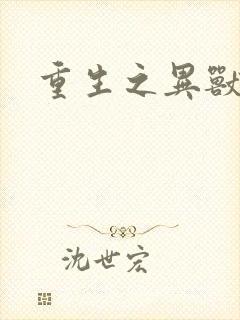 重生之異獸
沈世宏